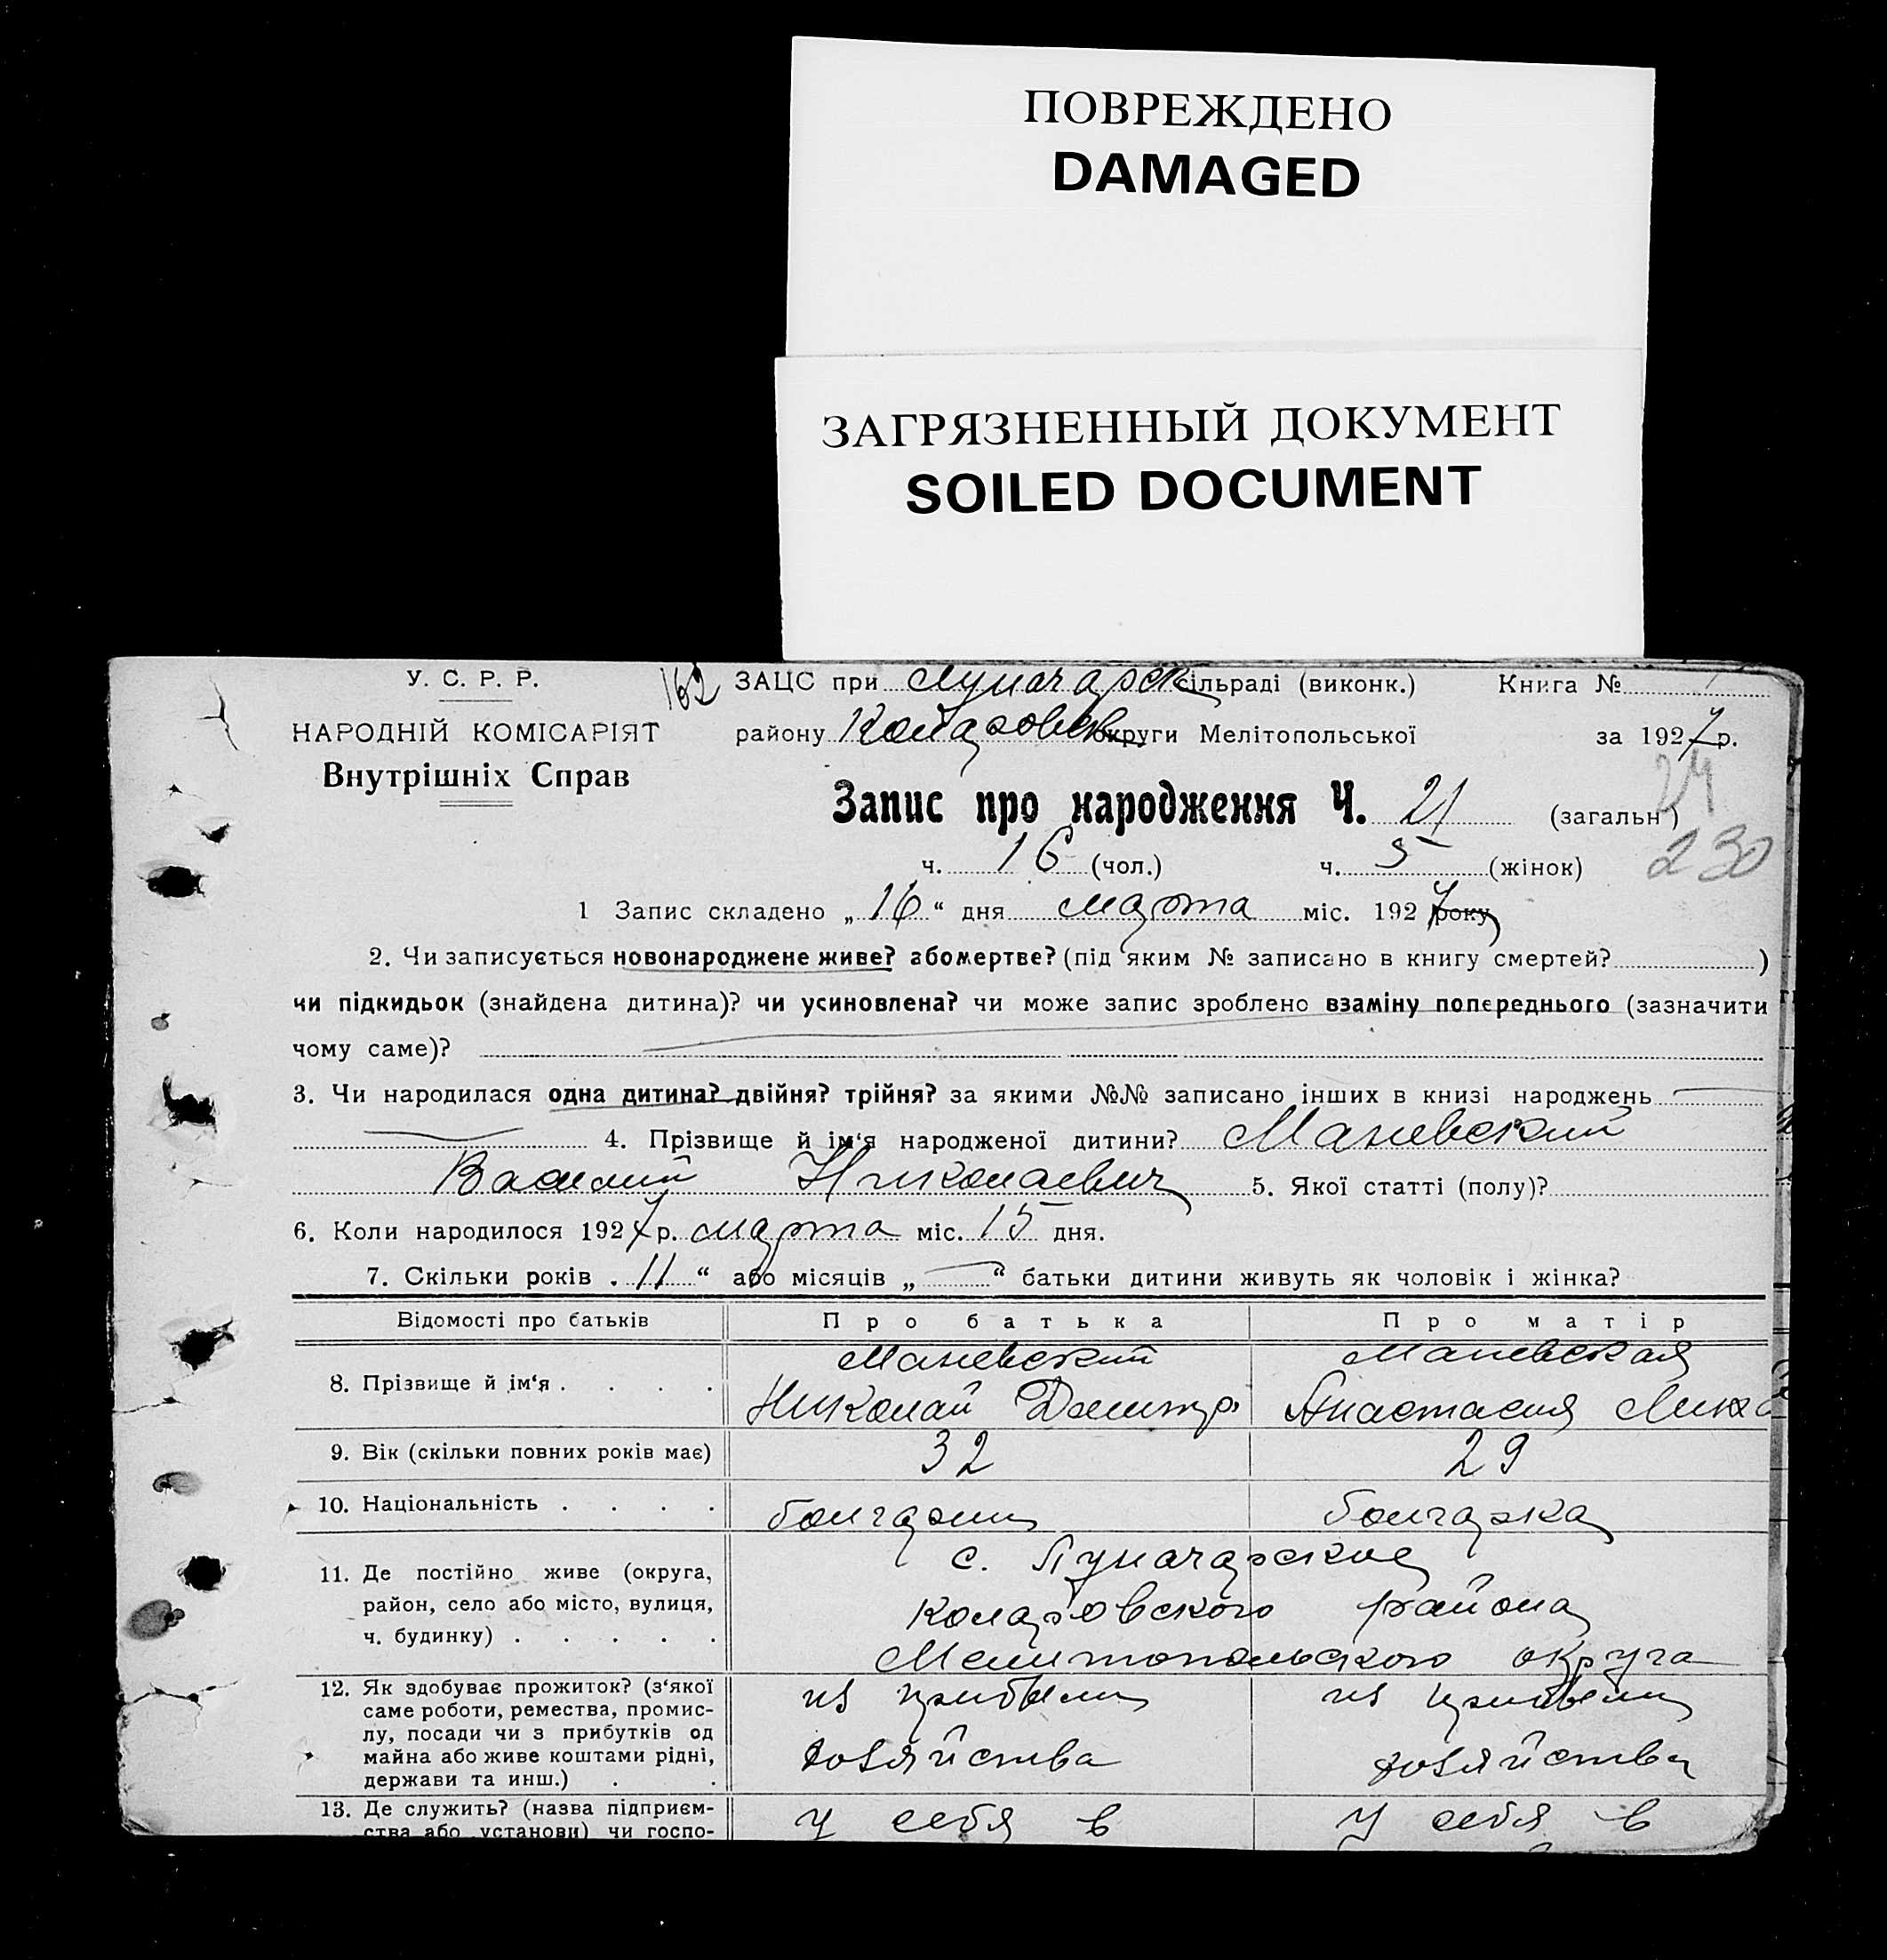 ПОВРЕЖДЕНО
DAMAGED
ЗАГРЯЗНЕННЫЙ ДОКУМЕНТ
SOILED DOCUMENT
У. С. Р. Р.
НАРОДНІЙ КОМІСАРІЯТ
Внутрішніх Справ
162 ЗАЦС при Луначарск сільраді (виконк.) Книга №
району Коларовск округи Мелітопольської за 1927 р.
24
Запис про народження Ч. 21 (загальн.)
230
ч. 16 (чол.) ч. 5 (жінок)
1 Запис складено „16“ дня марта міс. 1927 року
2. Чи записується новонароджене живе? або мертве? (під яким № записано в книгу смертей? )
чи підкидьок (знайдена дитина)? чи усиновлена? чи може запис зроблено взаміну попереднього (зазначити
чому саме)?
3. Чи народилася одна дитина? двійня? трійня? за якими №№ записано інших в книзі народжень
4. Прізвище й ім‘я народженої дитини? Маневский
Василий Николаевич 5. Якої статті (полу)?
6. Коли народилося 1927 р. марта міс. 15 дня.
7. Скільки років „11“ або місяців „—“ батьки дитини живуть як чоловік і жінка?
Відомості про батьків Про батька Про матір
8. Прізвище й ім‘я . . . . Маневский Маневская
Николай Дмитр Анастасия Миха
9. Вік (скільки повних років має) 32 29
10. Національність . . . . болгарин болгарка
11. Де постійно живе (округа, с. Луначарское
район, село або місто, вулиця, Коларовского района
ч. будинку) . . . . . Мелитопольского округа
12. Як здобуває прожиток? (з‘якої из прибыли из прибыли
саме роботи, ремества, промис-
лу, посади чи з прибутків од
майна або живе коштами рідні, хозяйства хозяйства
держави та инш.) . .
13. Де служить? (назва підприєм- у себя в у себя в
ства або установи) чи госпо-